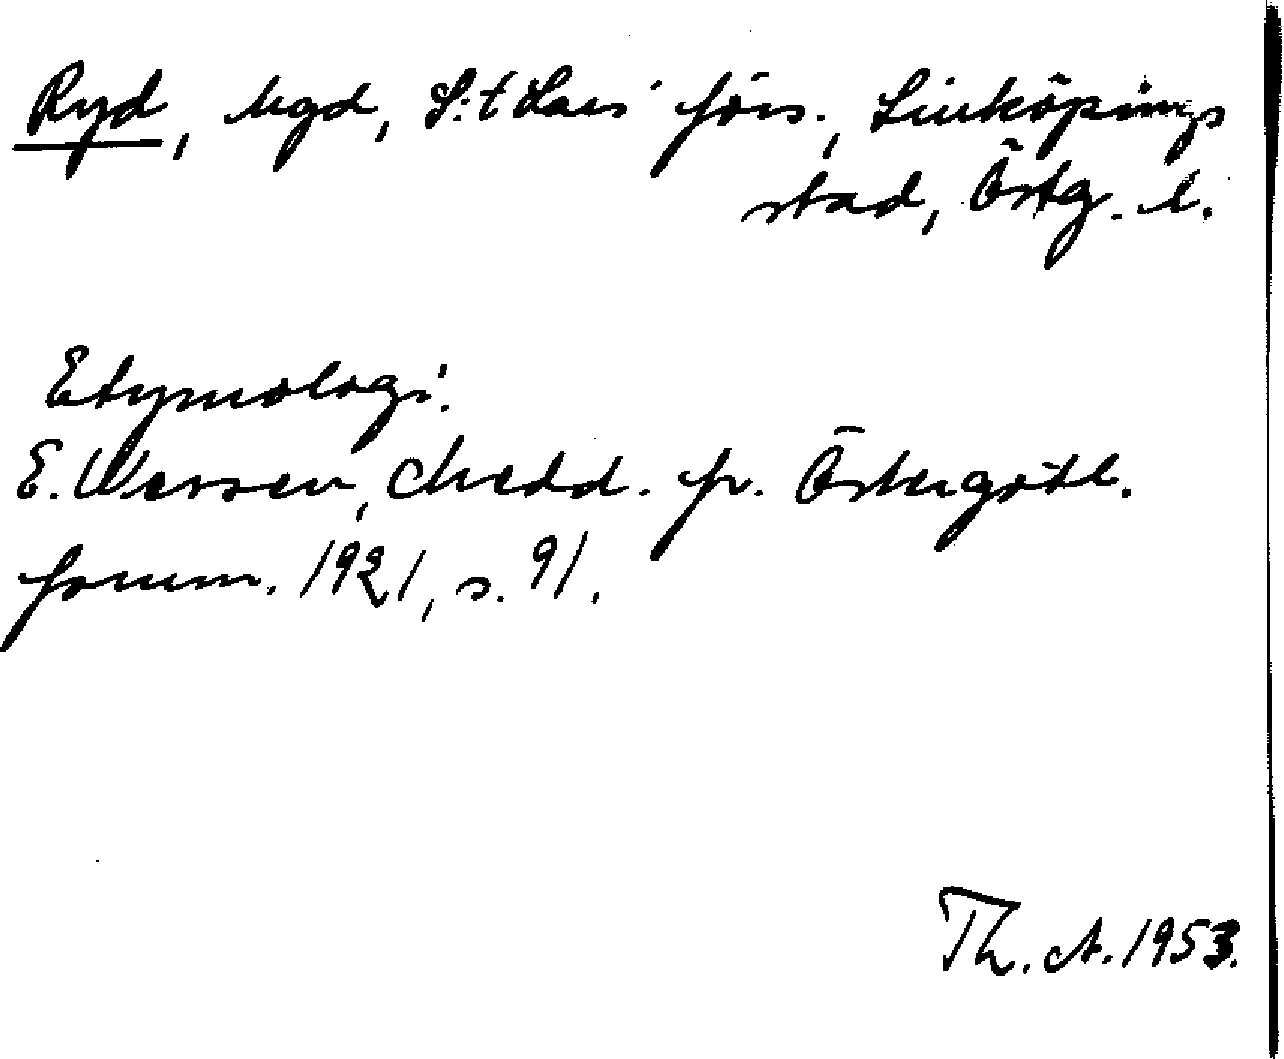 Ryd, hgd, S:t Lars' förs., Linköpings
stad, Östg. l.
Etymologi.
E. Wessen, Medd. fr. Östergötl.
fornm. 1921, s. 91.
Th. A. 1953.